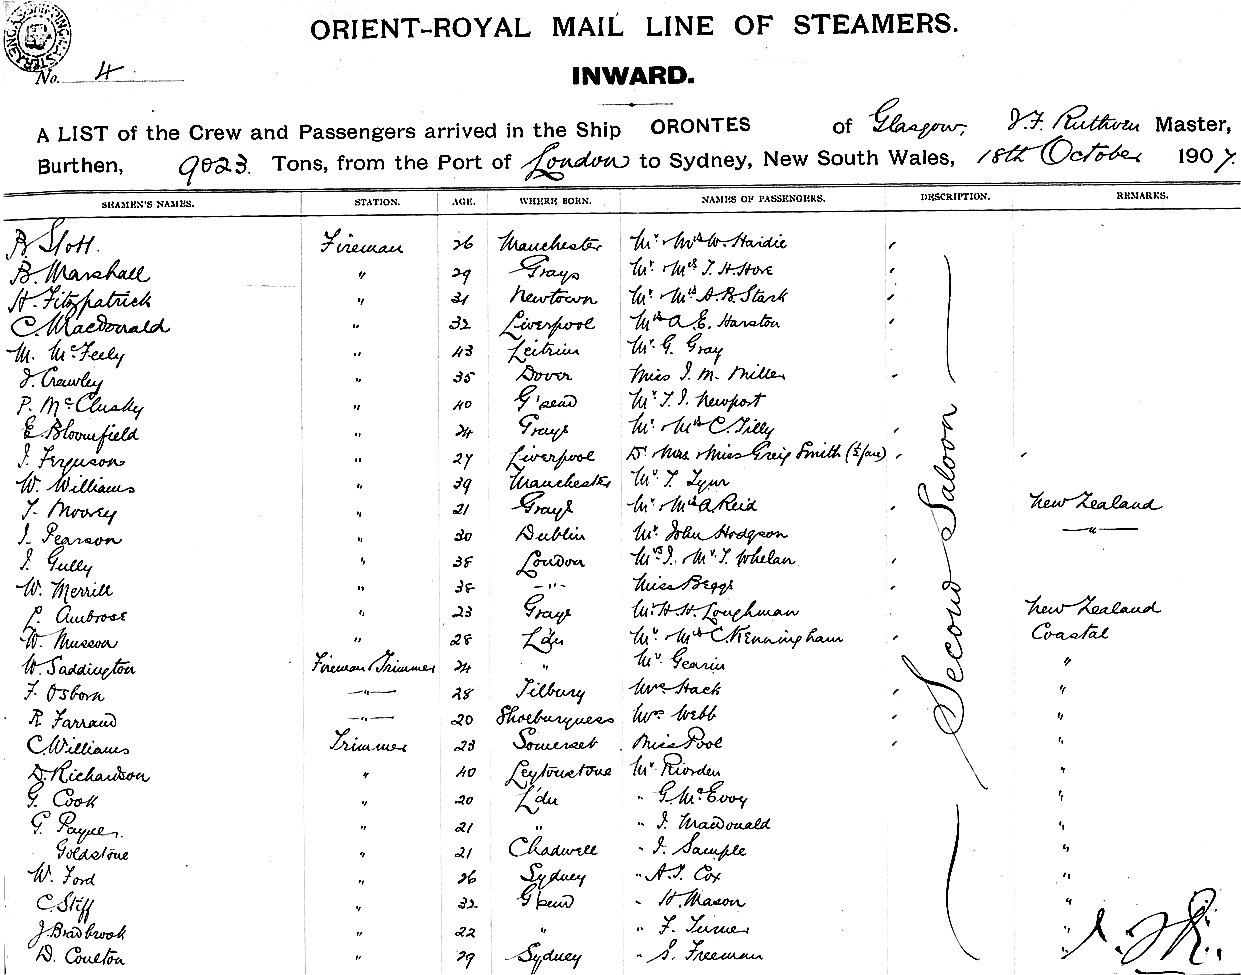 ORIENT-ROYAL MAIL LINE OF STEAMERS.
No. 4
INWARD.
A LIST of the Crew and Passengers arrived in the Ship ORONTES of Glasgow, J. F. Ruthven Master,
Burthen, 9023 Tons, from the Port of London to Sydney, New South Wales, 18th October 1907.
SEAMEN'S NAMES. STATION. AGE. WHERE BORN. NAMES OF PASSENGERS. DESCRIPTION. REMARKS.
Second Saloon
B. Slott. Fireman 26 Manchester Mr. Mrs W. Hardie "
B. Marshall " 29 Grays Mr. Mrs T. H. Hore "
H. Fitzpatrick " 31 Newtown Mr. Mrs A. B. Stark "
C. Macdonald " 32 Liverpool Mrs A. E. Harston "
M. McFeely " 43 Leitrim Mr. G. Gray
J. Crawley " 35 Dover Miss I. M. Miller "
P. McClusky " 40 G'sead Mr. T. J. Newport
E Bloomfield " 24 Grays Mr. Mrs C Tilly "
J. Ferguson " 27 Liverpool Dr Mrs. Miss Greig Smith (½ fare) " "
W. Williams " 39 Manchester Mr. T.
T. Moorey " 21 Grays Mr. Mrs A Reid " New Zealand
J. Pearson " 30 Dublin Mr. John Hodgson — " —
J. Gully " 38 London Mrs J. Mr. T. Whelan "
W. Merrill " 38 — " — Miss Beggs
L. Ambrose " 23 Grays Mr. H. H. Loughman New Zealand
W. Musson " 28 L'dn Mr. Mrs C Kenningham " Coastal
W. Saddington Fireman & Trimmer 24 " Mr. Gearin "
F. Osborn — " — 28 Tilbury Mrs Hack " "
R Farraud — " — 20 Shoeburyness Mrs Webb " "
C. Williams Trimmer 23 Somerset Miss Pool " "
D. Richardson " 40 Leytonstone Mr. Riorden "
G. Cook " 20 L'dn " G. McEvoy "
G. Payne. " 21 " " J. Macdonald "
Goldstone " 21 Chadwell " J. Sample "
W. Ford " 26 Sydney " A. J. Cox "
C. Stiff " 32 G'sead " H. Mason "
J. Bradbrook " 22 " " F. Turner "
D. Coulton " 29 Sydney " S. Freeman "